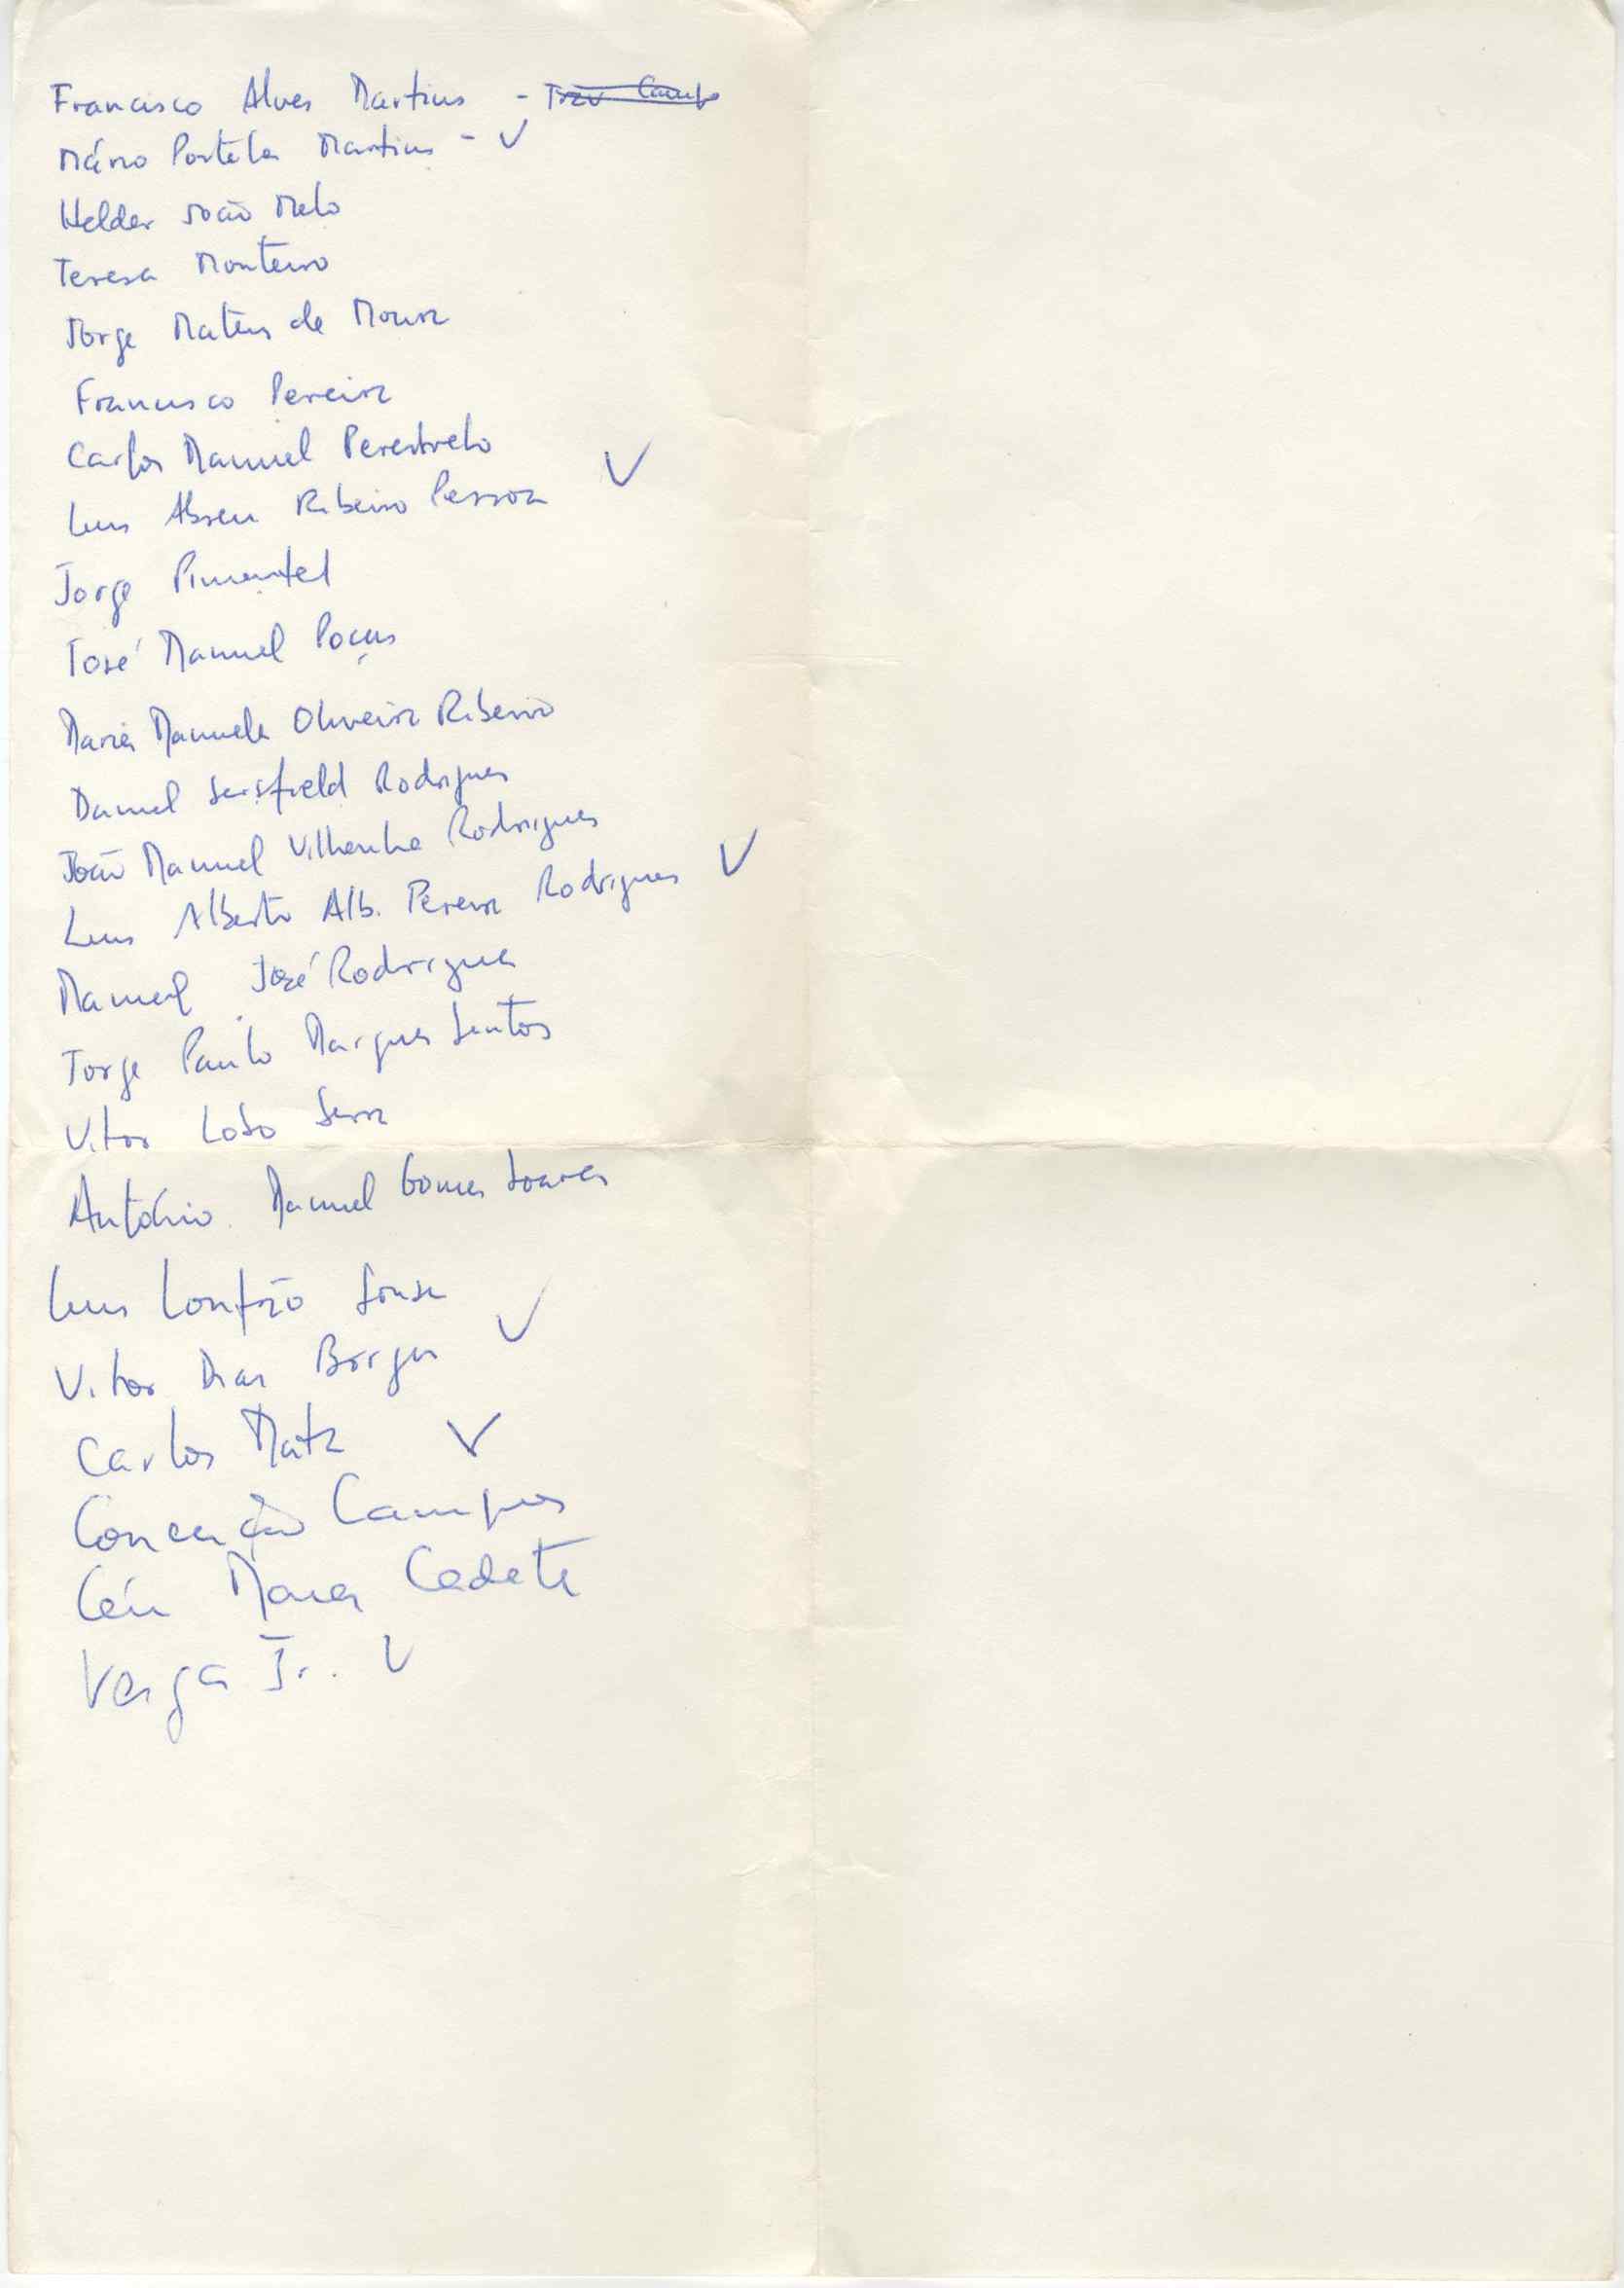 Francisco Alves Martins -
Mário Portela Martins - ✓
Helder João Melo
Teresa Monteiro
Jorge Mateus de Moura
Francisco Pereira
Carlos Manuel Perestrelo
Luis Abreu Ribeiro Pessoa ✓
Jorge Pimentel
José Manuel Poças
Maria Manuela Oliveira Ribeiro
Daniel Sarsfield Rodrigues
João Manuel Vilhenha Rodrigues
Luis Alberto Alb. Pereira Rodrigues ✓
Manuel José Rodrigues
Jorge Paulo Marques Santos
Vitor Lobo Serra
António Manuel Gomes Soares
Luis Sousa
Vitor Dias Borges ✓
Carlos Mata ✓
Conceição Campos
Céu Maria Cadete
Veiga Jr. ✓